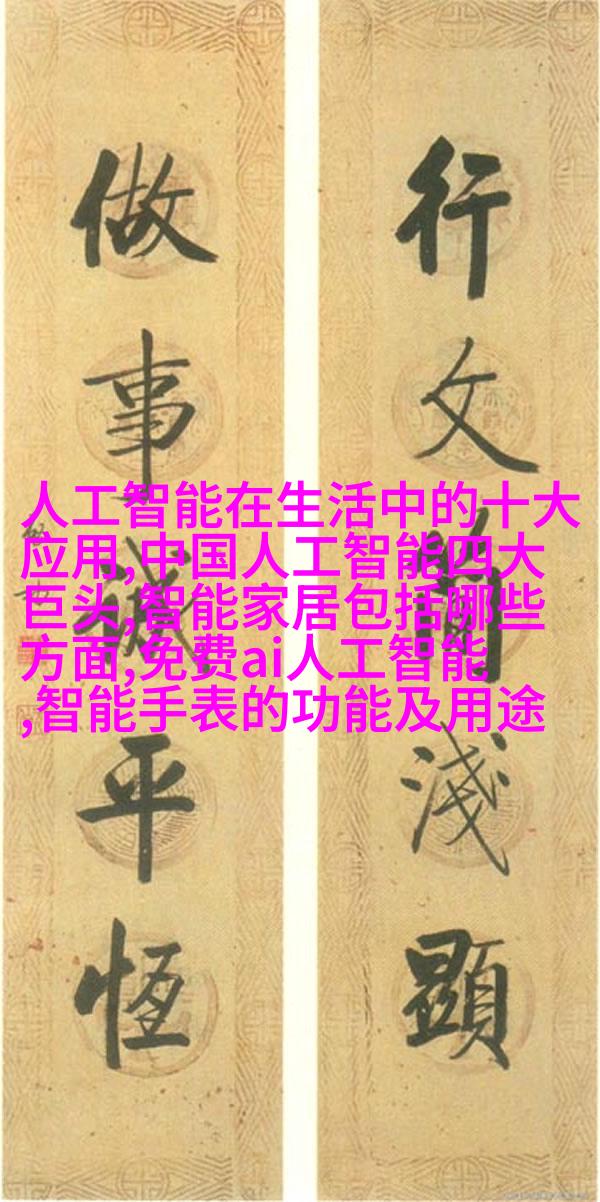 行文簡淺顯
做事誠平恆
人工智能在生活中的十大
应用,中国人工智能四大
巨头,智能家居包括哪些
方面,免费ai人工智能
,智能手表的功能及用途